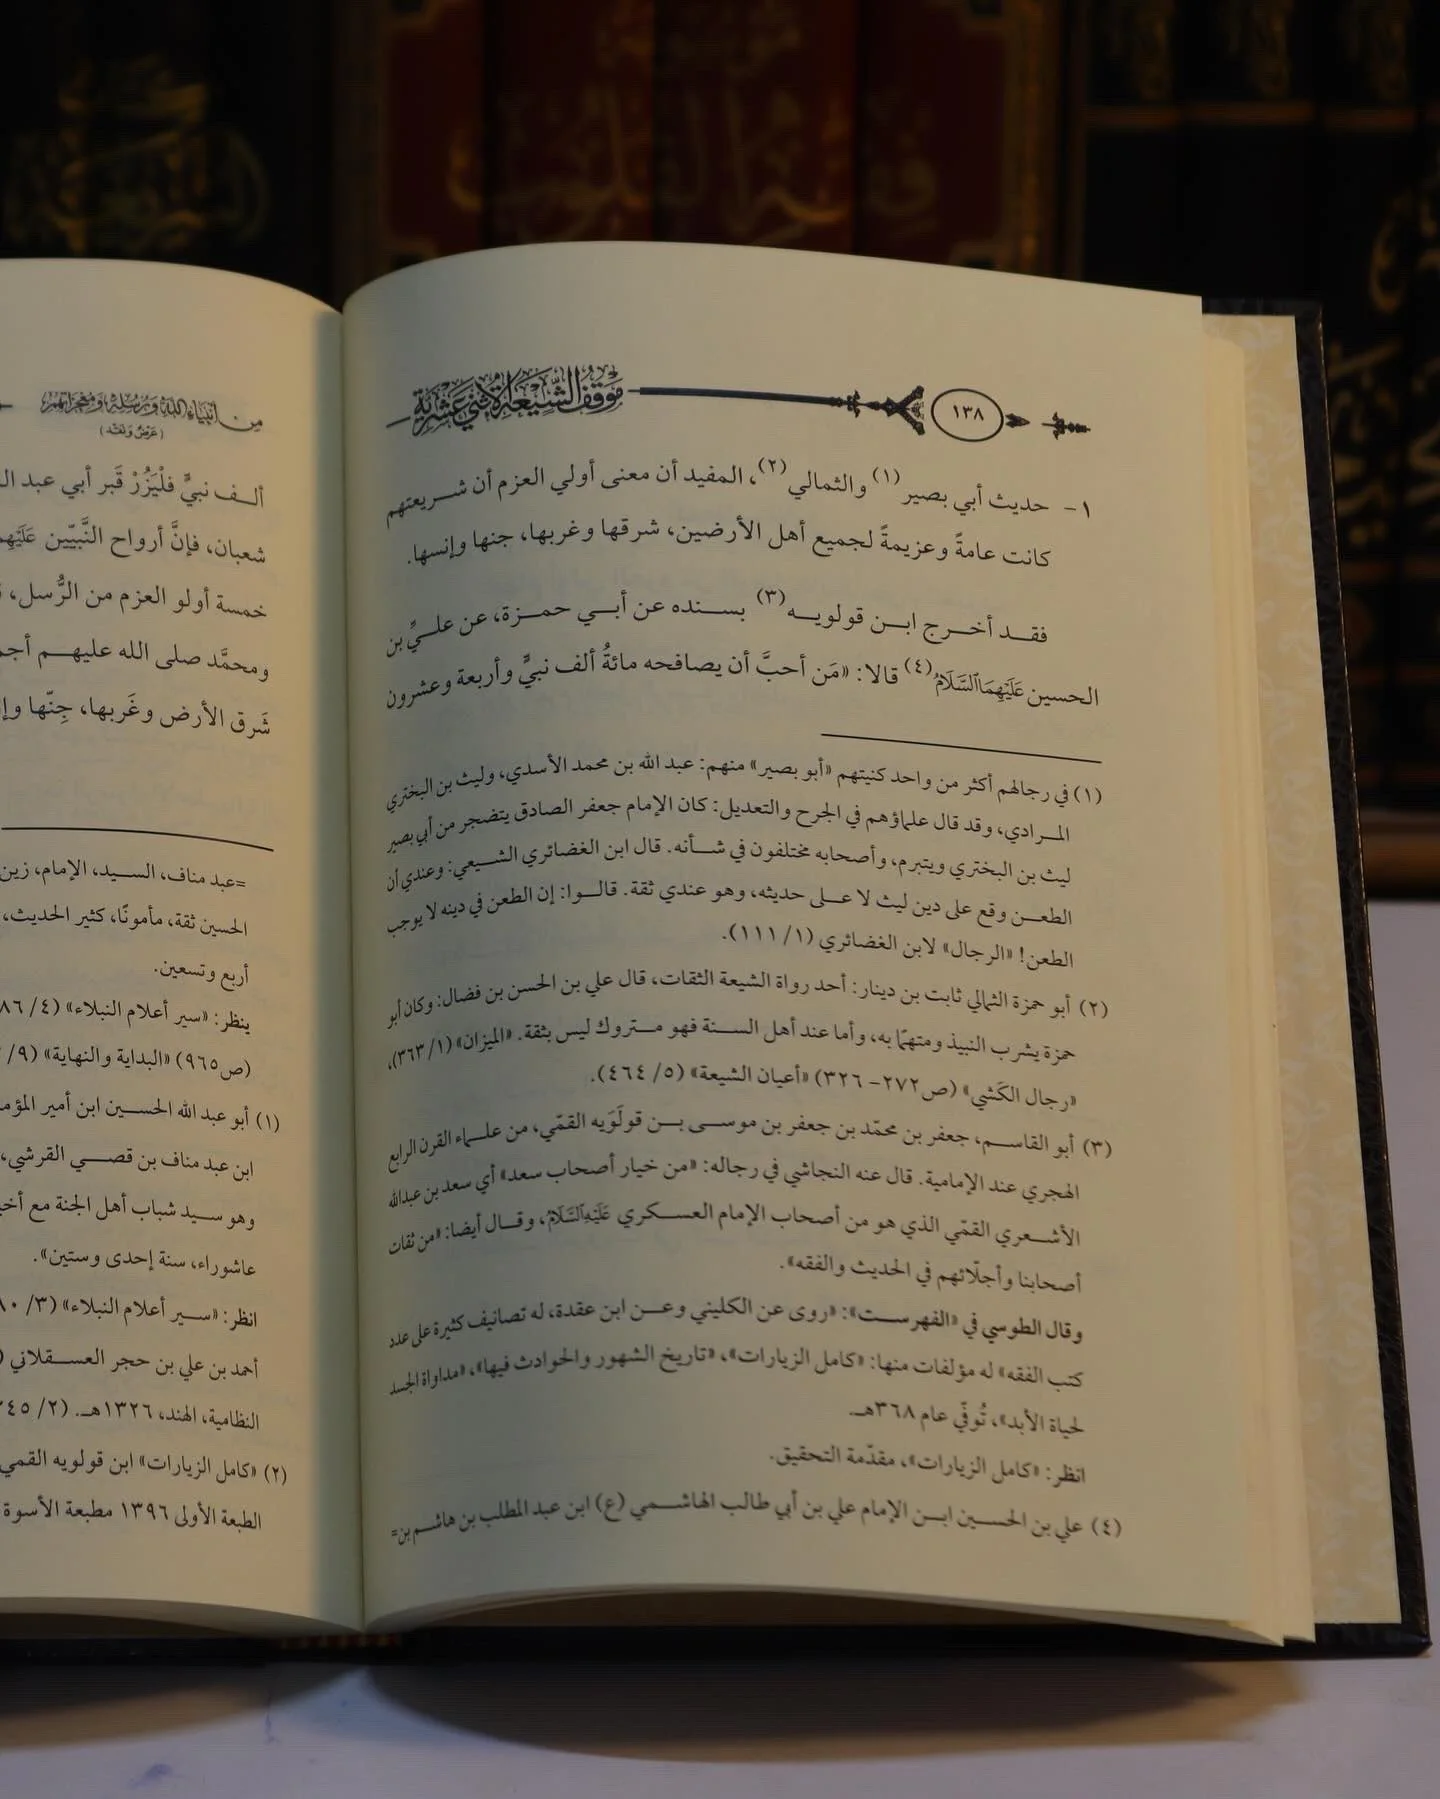 موقف الشيعة الاثني عشرية
١٣٨
١- حديث أبي بصير(١) والثمالي(٢)، المفيد أن معنى أولي العزم أن شريعتهم
كانت عامةً وعزيمةً لجميع أهل الأرضين، شرقها وغربها، جنها وإنسها.
فقد أخرج ابن قولويه(٣) بسنده عن أبي حمزة، عن عليِّ بن
الحسين عَلَيْهِمَا السَّلَامُ(٤) قالا: «مَن أحبَّ أن يصافحه مائةُ ألف نبيٍّ وأربعة وعشرون
(١) في رجالهم أكثر من واحد كنيتهم «أبو بصير» منهم: عبد الله بن محمد الأسدي، وليث بن البختري
المرادي، وقد قال علماؤهم في الجرح والتعديل: كان الإمام جعفر الصادق يتضجر من أبي بصير
ليث بن البختري ويتبرم، وأصحابه مختلفون في شأنه. قال ابن الغضائري الشيعي: وعندي أن
الطعن وقع على دين ليث لا على حديثه، وهو عندي ثقة. قالوا: إن الطعن في دينه لا يوجب
الطعن! «الرجال» لابن الغضائري (١/ ١١١).
(٢) أبو حمزة الثمالي ثابت بن دينار: أحد رواة الشيعة الثقات، قال علي بن الحسن بن فضال: وكان أبو
حمزة يشرب النبيذ ومتهمًا به، وأما عند أهل السنة فهو متروك ليس بثقة. «الميزان» (١/ ٣٦٣)،
«رجال الكَشي» (ص٢٧٢- ٣٢٦) «أعيان الشيعة» (٥/ ٤٦٤).
(٣) أبو القاسم، جعفر بن محمّد بن جعفر بن موسى بن قولَوَيه القمّي، من علماء القرن الرابع
الهجري عند الإمامية. قال عنه النجاشي في رجاله: «من خيار أصحاب سعد» أي سعد بن عبدالله
الأشعري القمّي الذي هو من أصحاب الإمام العسكري عَلَيْهِ السَّلَامُ، وقال أيضا: «من ثقات
أصحابنا وأجلّائهم في الحديث والفقه».
وقال الطوسي في «الفهرست»: «روى عن الكليني وعن ابن عقدة، له تصانيف كثيرة على عدد
كتب الفقه» له مؤلفات منها: «كامل الزيارات»، «تاريخ الشهور والحوادث فيها»، «مداواة الجسد
لحياة الأبد»، تُوفّي عام ٣٦٨هـ.
انظر: «كامل الزيارات»، مقدّمة التحقيق.
(٤) علي بن الحسين ابن الإمام علي بن أبي طالب الهاشمي (ع) ابن عبد المطلب بن هاشم بن=
من أنبياء الله ورسله ومعجزاتهم
(عرض ونقد)
ألف نبيٍّ فلْيَزُرْ قَبر أبي عبد
شعبان، فإنَّ أرواح النَّبيّين
خمسة أولو العزم من الرُّسل،
ومحمَّد صلى الله عليهم
شَرق الأرض وغَربها، جِنّها
=عبد مناف، السيد، الإمام، زين
الحسين ثقة، مأمونًا، كثير الحديث،
أربع وتسعين.
ينظر: «سير أعلام النبلاء» (٤/
(ص٩٦٥) «البداية والنهاية» (٩/
(١) أبو عبد الله الحسين ابن أمير
ابن عبد مناف بن قصي القرشي،
وهو سيد شباب أهل الجنة مع
عاشوراء، سنة إحدى وستين».
انظر: «سير أعلام النبلاء» (٣/
أحمد بن علي بن حجر العسقلاني
النظامية، الهند، ١٣٢٦هـ. (٢/
(٢) «كامل الزيارات» ابن قولويه القمي
الطبعة الأولى ١٣٩٦ مطبعة الأسوة
فقه القلوب